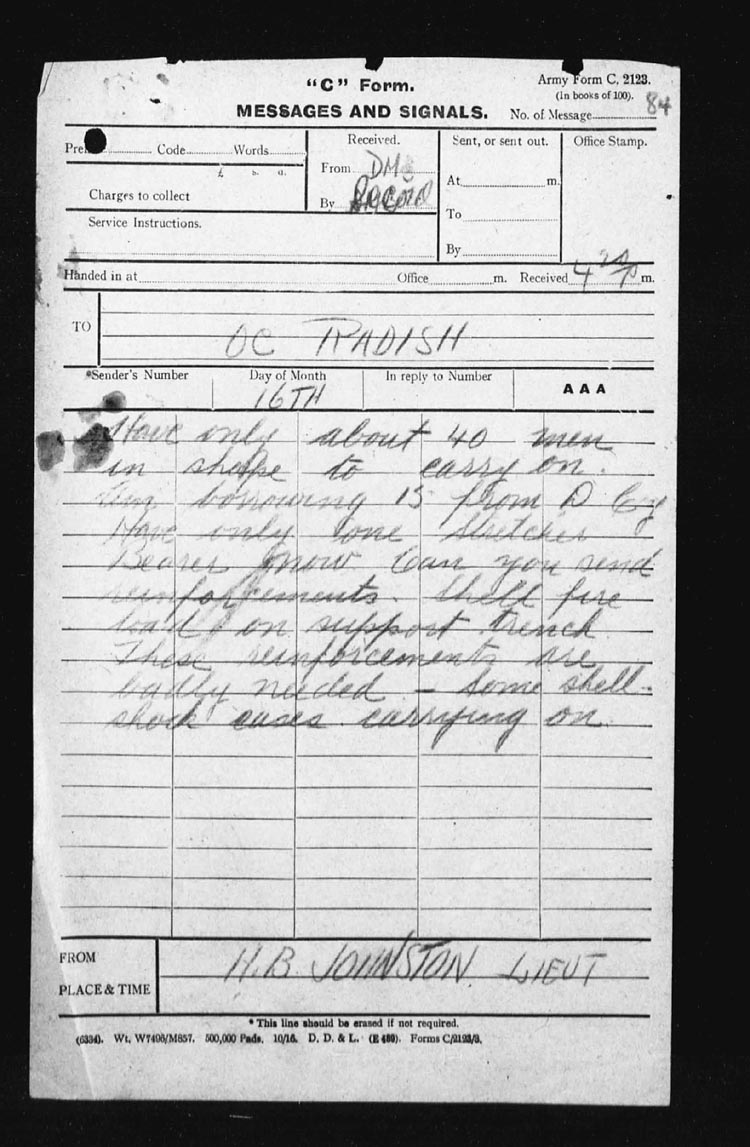 "C" Form.
Army Form C. 2123.
(In books of 100).
MESSAGES AND SIGNALS.
No. of Message 84
Code Words
£ s. d.
Charges to collect
Service Instructions.
Received.
From DM
By
Sent, or sent out.
At m.
To
By
Office Stamp.
Handed in at Office m. Received 4 p m.
TO OC RADISH
*Sender's Number
Day of Month
In reply to Number
AAA
16TH
Have only about 40 men
in shape to carry on.
Am borrowing 15 from D Coy
Have only one stretcher
Bearer now. Can you send
reinforcements. Shell fire
bad on support trench
These reinforcements are
badly needed – some shell-
shock cases carrying on.
FROM H.B. JOHNSTON LIEUT
PLACE & TIME
* This line should be erased if not required.
(6334). Wt. W7496/M857. 500,000 Pads. 10/16. D. D. & L. (E 489). Forms C/2123/3.